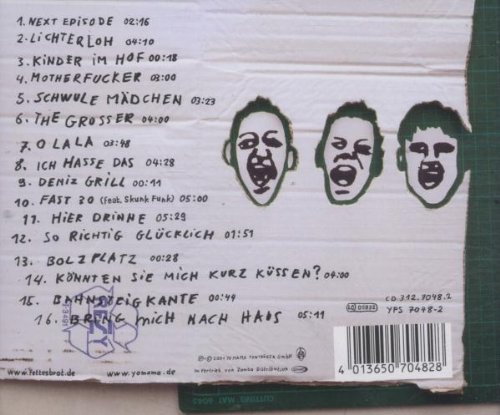 1. NEXT EPISODE 02:16
2. LICHTERLOH 04:10
3. KINDER IM HOF 00:18
4. MOTHERFUCKER 03:00
5. SCHWULE MÄDCHEN 03:23
6. THE GROSSER 04:00
7. O LALA 03:48
8. ICH HASSE DAS 04:28
9. DENIZ GRILL 00:11
10. FAST 30 (feat. Skunk Funk) 05:00
11. HIER DRINNE 05:29
12. SO RICHTIG GLÜCKLICH 01:51
13. BOLZPLATZ 00:28
14. KÖNNTEN SIE MICH KURZ KÜSSEN? 04:00
15. BAHNSTEIGKANTE 00:44
16. BRING MICH NACH HAUS 05:11
RESY
LC 00832
CD 312.7048.2
YPS 7048-2
4 013650 704828
www.fettesbrot.de
www.yomama.de
CUTTING MAT